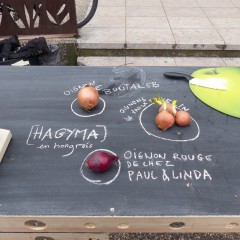 OIGNON
BOUTALEB
OIGNONS
[HAGYMA]
en hongrois
OIGNON ROUGE
DE CHEZ
PAUL & LINDA